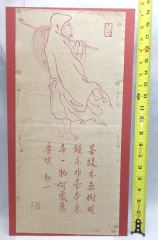 菩提本無樹明
鏡亦非臺本來
無一物何處惹
塵埃 弘一